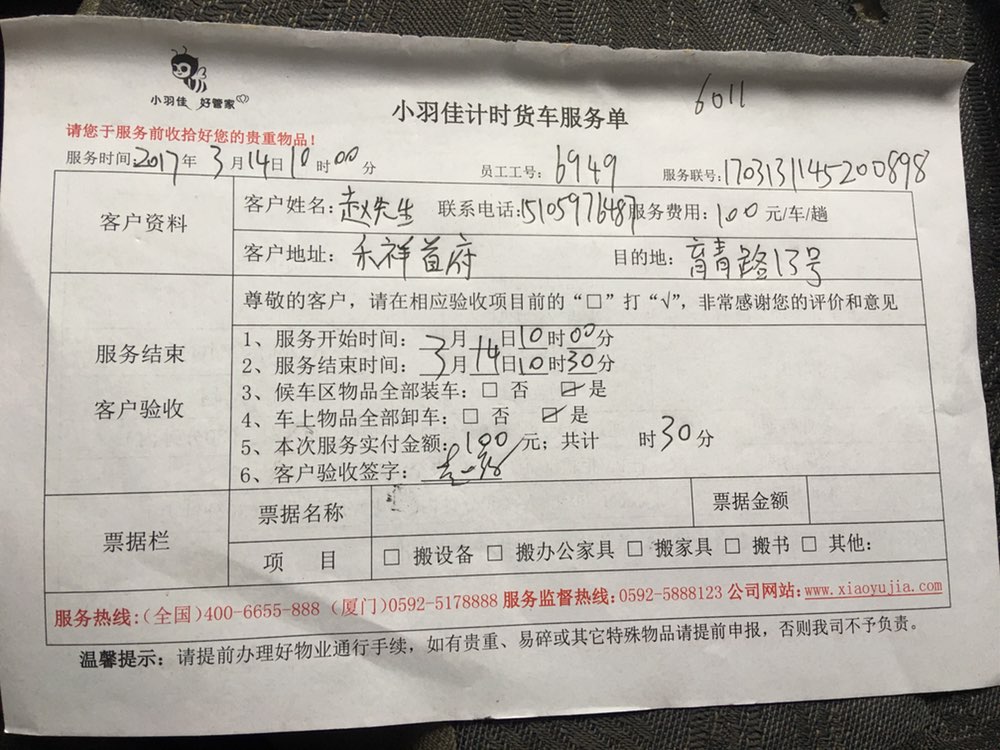 小羽佳 好管家
小羽佳计时货车服务单
6011
请您于服务前收拾好您的贵重物品！
服务时间：2017年3月14日10时00分 员工工号：6949 服务联号：1703131145200898
客户资料
客户姓名：赵先生 联系电话：15105976487 服务费用：100元/车/趟
客户地址：禾祥首府 目的地：育青路13号
服务结束
客户验收
尊敬的客户，请在相应验收项目前的“□”打“√”，非常感谢您的评价和意见
1、服务开始时间：3月14日10时00分
2、服务结束时间：3月14日10时30分
3、候车区物品全部装车：□ 否 ☑ 是
4、车上物品全部卸车：□ 否 ☑ 是
5、本次服务实付金额：100元；共计 时30分
6、客户验收签字：
票据栏
票据名称 票据金额
项 目 □ 搬设备 □ 搬办公家具 □ 搬家具 □ 搬书 □ 其他：
服务热线：（全国）400-6655-888（厦门）0592-5178888 服务监督热线：0592-5888123 公司网站：www.xiaoyujia.com
温馨提示：请提前办理好物业通行手续，如有贵重、易碎或其它特殊物品请提前申报，否则我司不予负责。